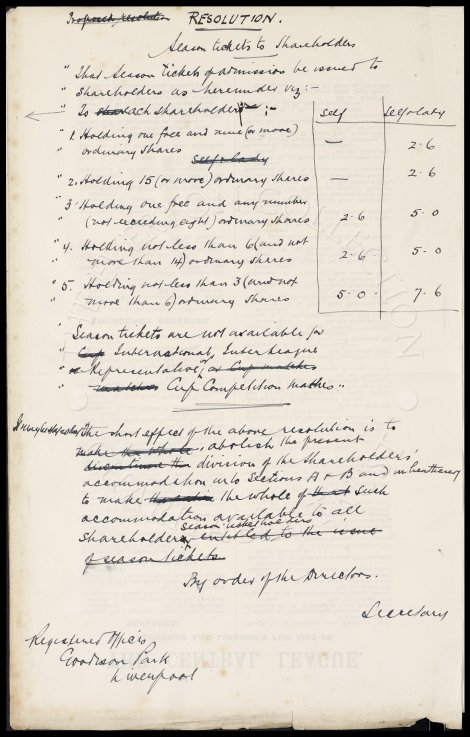 Proposed resolution RESOLUTION.
Season tickets to Shareholders
" That Season tickets of admission be issued to
" Shareholders as hereunder viz:-
" To each shareholder :-
Self Self & Lady
" 1. Holding one free and nine (or more)
" ordinary shares — 2.6
Self & Lady
" 2. Holding 15 (or more) ordinary shares — 2.6
" 3 Holding one free and any number
" (not exceeding eight) ordinary shares 2.6 5.0
" 4. Holding not less than 6 (and not
" more than 14) ordinary shares 2.6 5.0
" 5. Holding not less than 3 (and not
" more than 6) ordinary shares 5.0 7.6
" Season tickets are not available for
" Cup International, Inter League
" Representative, or Cup matches
" matches Cup Competition matches."
The short effect of the above resolution is to
make the whole, abolish the present
discontinue the division of the Shareholders'
accommodation into Sections A & B and
to make the whole of such
accommodation available to all
season ticket holders
shareholders entitled to the issue
of season tickets
By order of the Directors.
Secretary
Registered Office,
Goodison Park
Liverpool
CENTRAL LEAGUE.